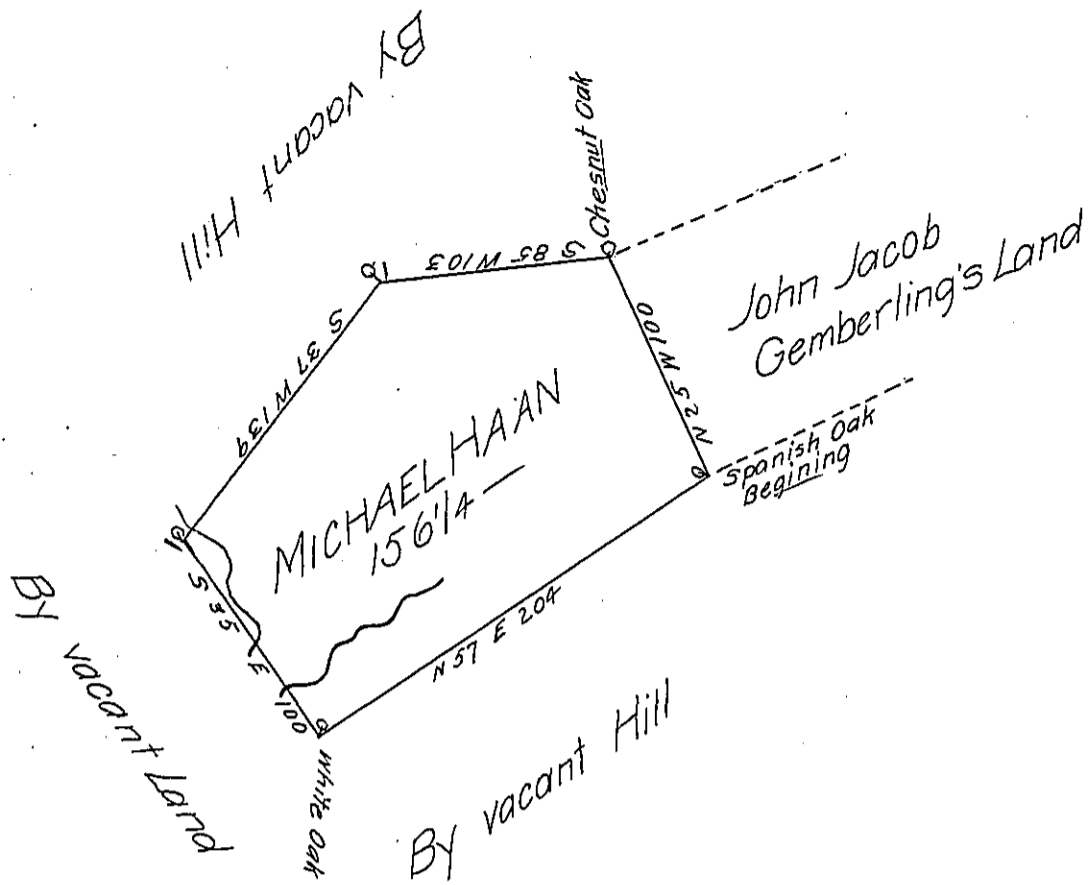 By vacant Hill
Chesnut Oak
S 85 W 103
John Jacob
Gemberling's Land
S 37 W 139
N 25 W 100
MICHAEL HAAN
156 1/4
Spanish Oak
Begining
S 35 E 100
N 57 E 204
By vacant Land
White Oak
By vacant Hill